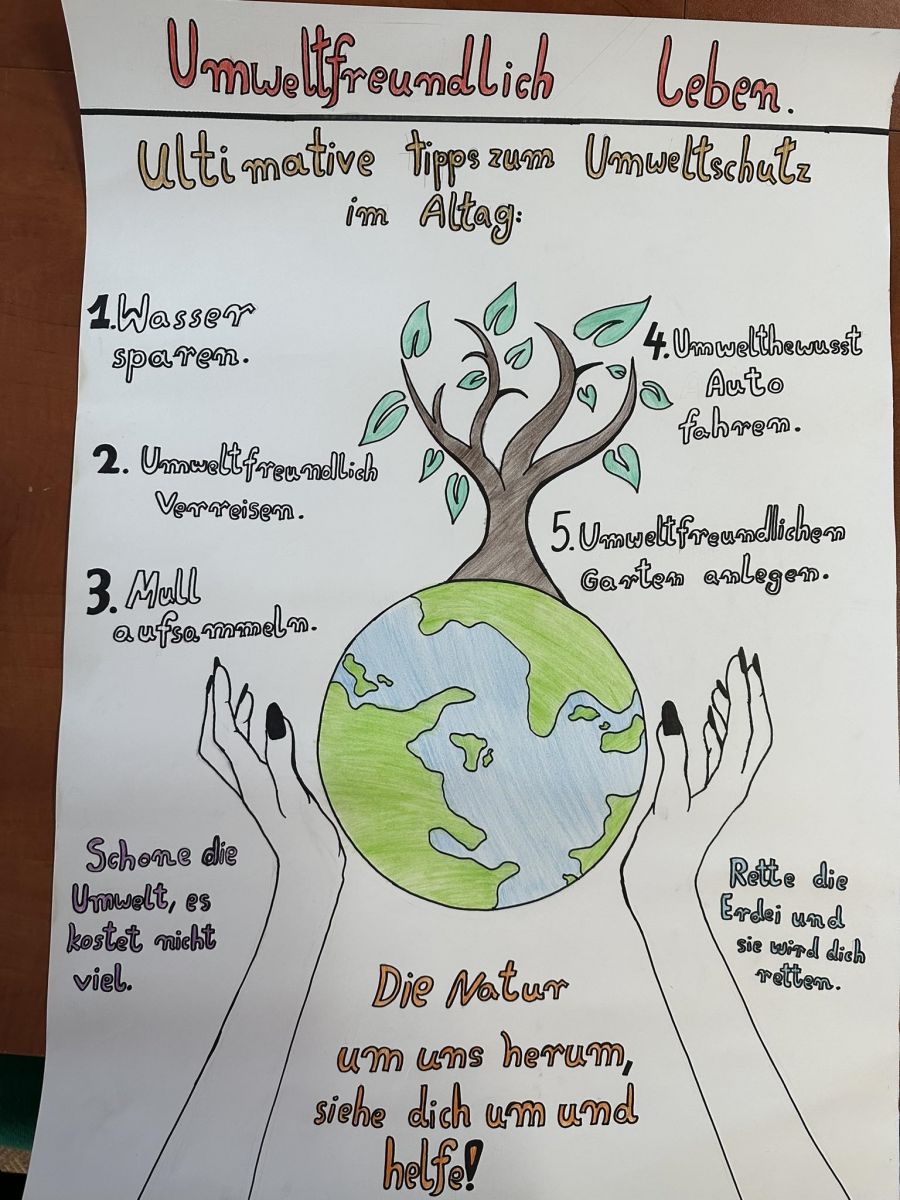 Umweltfreundlich leben.
Ultimative tipps zum Umweltschutz
im Altag:
1. Wasser
sparen.
2. Umweltfreundlich
Verreisen.
3. Mull
aufsammeln.
4. Umwelthewusst
Auto
fahren.
5. Umweltfreundlichen
Garten anlegen.
Schone die
Umwelt, es
kostet nicht
viel.
Rette die
Erdei und
sie wird dich
retten.
Die Natur
um uns herum,
siehe dich um und
helfe!